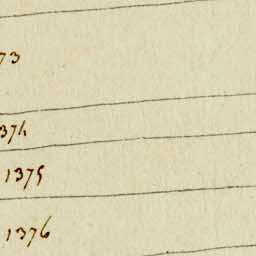 73
374
1375
1376